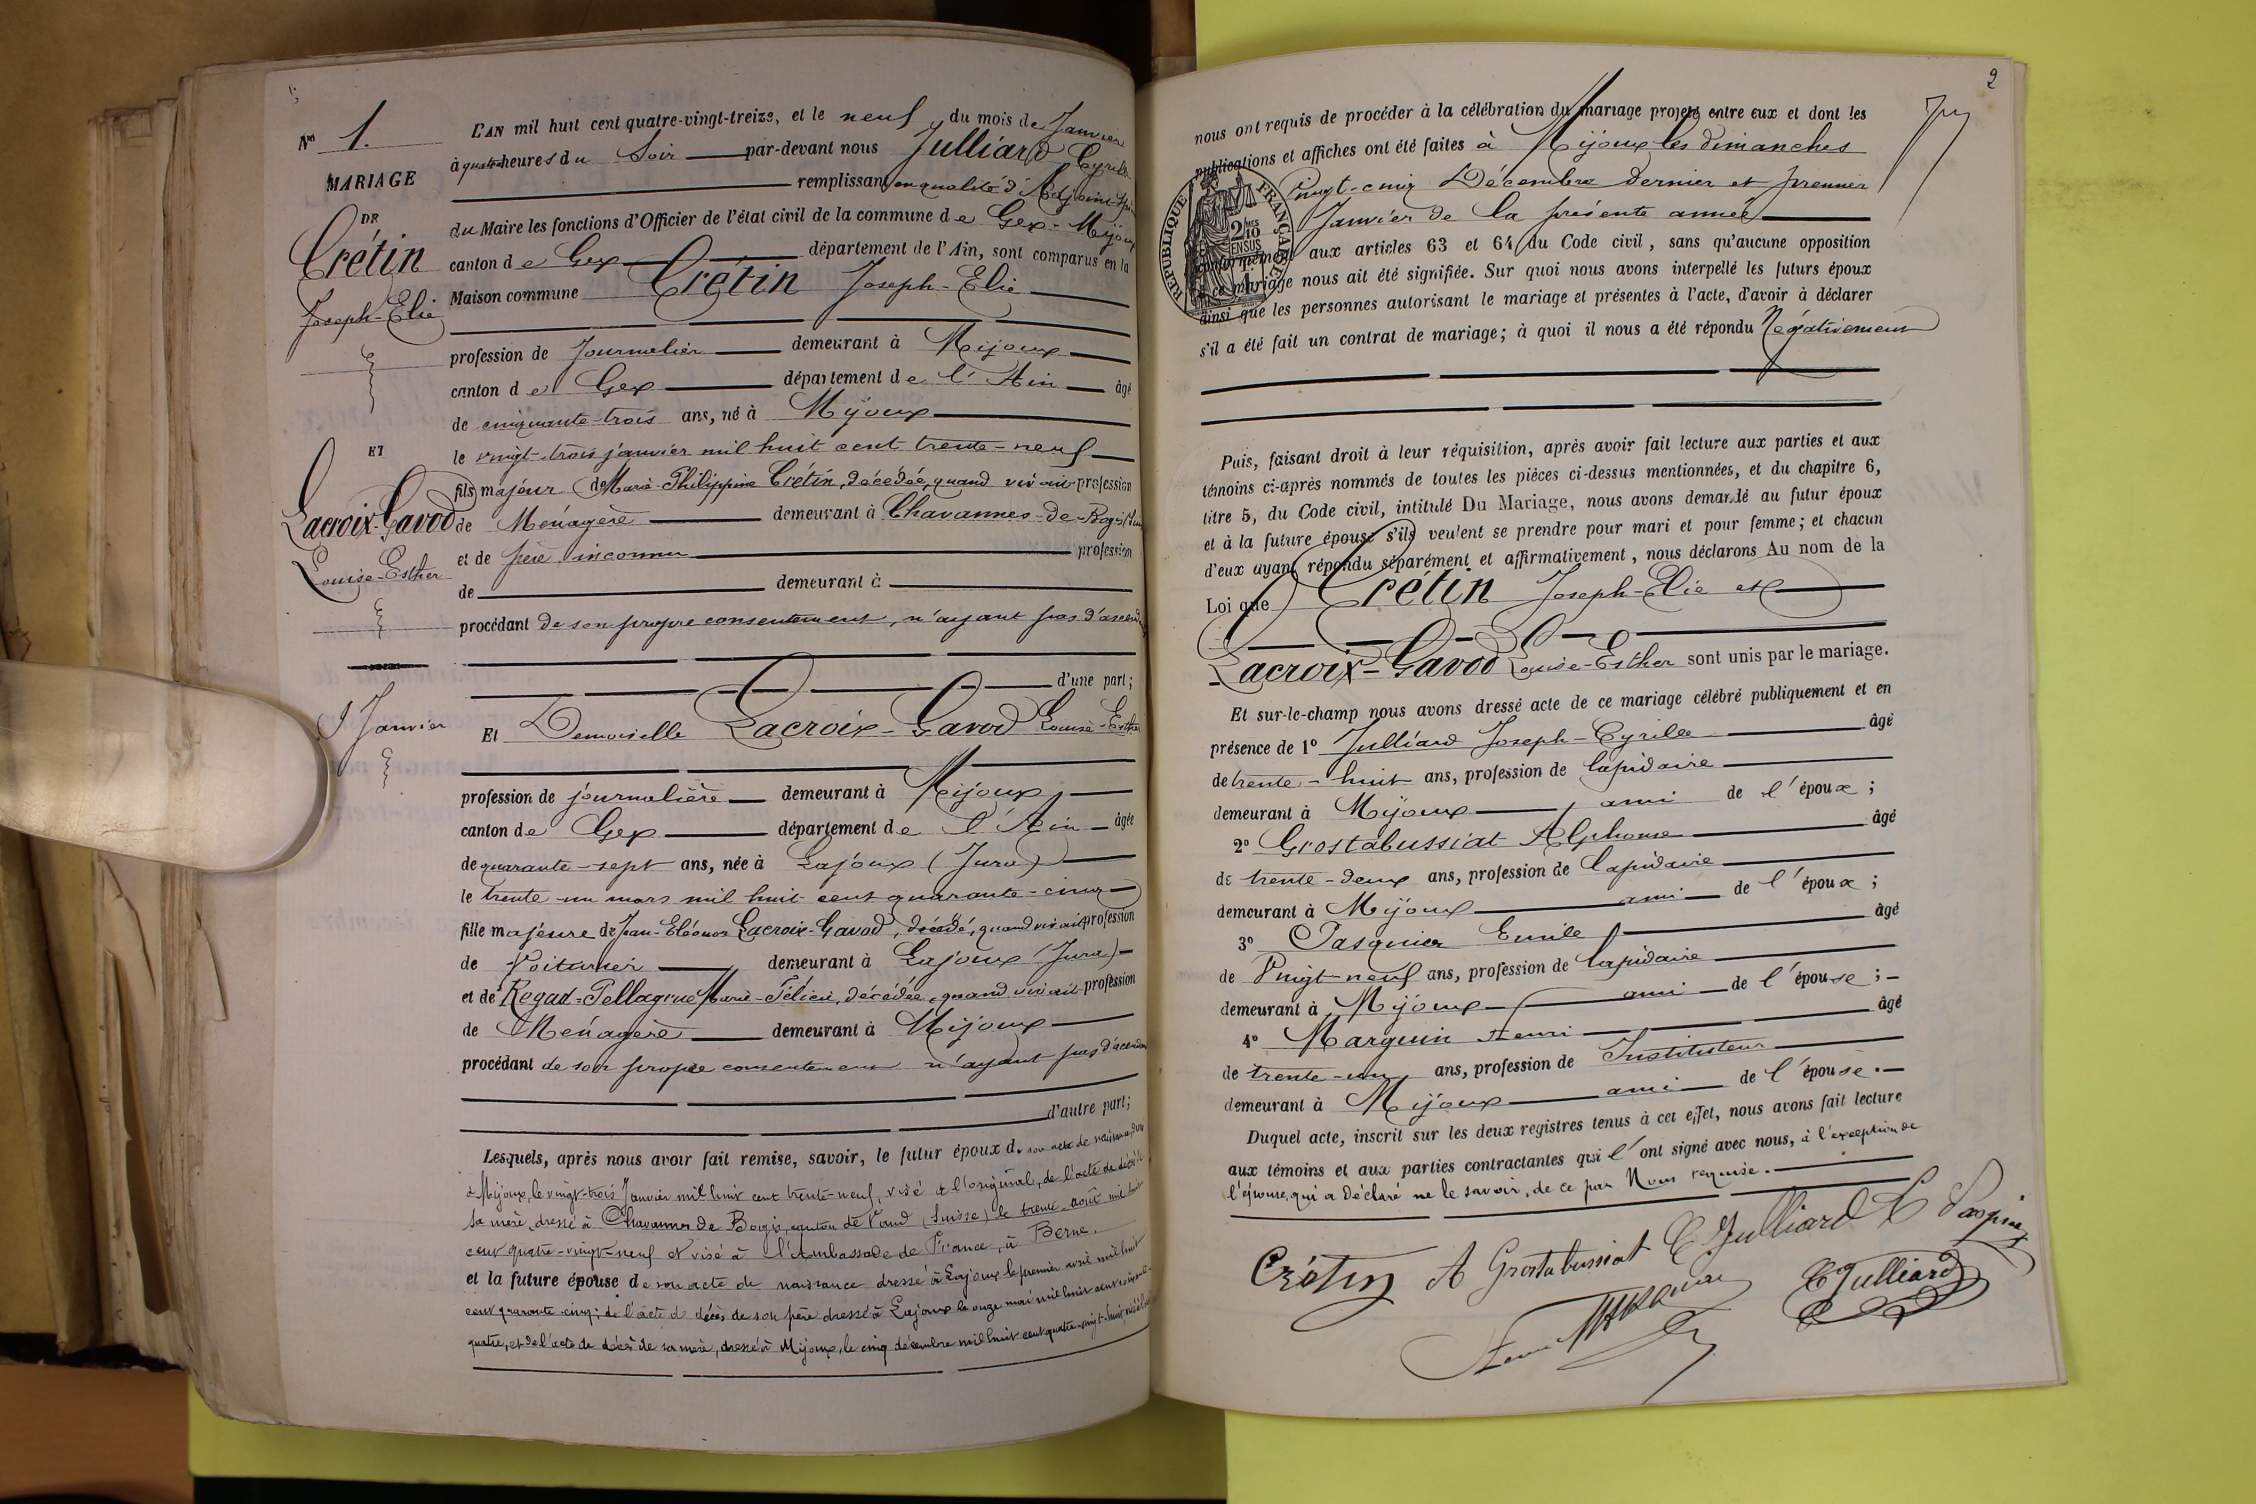 Nos 1.
MARIAGE
DE
Crétin
Joseph-Elie
ET
Lacroix-Gavod
Louise-Esther
9 Janvier
L'AN mil huit cent quatre-vingt-treize, et le neuf du mois de Janvier
à quatre heures du Soir par-devant nous Julliard Cyrille
remplissant en qualité d'Adjoint
du Maire les fonctions d'Officier de l'état civil de la commune de Gex-Mijoux
canton de Gex département de l'Ain, sont comparus en la
Maison commune Crétin Joseph-Elie
profession de Journalier demeurant à Mijoux
canton de Gex département de l'Ain âgé
de cinquante-trois ans, né à Mijoux
le vingt-trois janvier mil huit cent trente-neuf
fils majeur de Marie-Philippine Crétin, décédée, quand vivait profession
de Ménagère demeurant à Chavannes-de-Bogis
et de père inconnu profession
de demeurant à
procédant de son propre consentement, n'ayant pas d'ascend
d'une part;
Et Demoiselle Lacroix-Gavod Louise-Esther
profession de journalière demeurant à Mijoux
canton de Gex département de l'Ain âgée
de quarante-sept ans, née à Lajoux (Jura)
le trente-un mars mil huit cent quarante-cinq
fille majeure de Jean-Eléonor Lacroix-Gavod, décédé, quand vivait profession
de Voiturier demeurant à Lajoux (Jura)
et de Regad-Pellagrue Marie-Félicie, décédée, quand vivait profession
de Ménagère demeurant à Mijoux
procédant de son propre consentement n'ayant pas d'acendan
d'autre part;
Lesquels, après nous avoir fait remise, savoir, le futur époux de son acte de naissance
à Mijoux, le vingt-trois Janvier mil huit cent trente-neuf, visé à l'original, de l'acte de décès de
sa mère, dressé à Chavannes de Bogis, canton de Vaud (Suisse) le trente août mil huit
cent quatre-vingt-neuf et visé à l'Ambassade de France, à Berne.
et la future épouse de son acte de naissance dressé à Lajoux le premier avril mil huit
cent quarante-cinq; de l'acte de décès de son père dressé à Lajoux le onze mai mil huit cent
quatre, et de l'acte de décès de sa mère, dressé à Mijoux, le cinq décembre mil huit cent quatre-vingt-huit
2
nous ont requis de procéder à la célébration du mariage projeté entre eux et dont les
publications et affiches ont été faites à Mijoux les dimanches
Vingt-cinq Décembre dernier et premier
Janvier de la présente année
conformément aux articles 63 et 64 du Code civil, sans qu'aucune opposition
à ce mariage nous ait été signifiée. Sur quoi nous avons interpellé les futurs époux
ainsi que les personnes autorisant le mariage et présentes à l'acte, d'avoir à déclarer
s'il a été fait un contrat de mariage; à quoi il nous a été répondu Négativement
RÉPUBLIQUE FRANÇAISE
2/10 EN SUS
Puis, faisant droit à leur réquisition, après avoir fait lecture aux parties et aux
témoins ci-après nommés de toutes les pièces ci-dessus mentionnées, et du chapitre 6,
titre 5, du Code civil, intitulé Du Mariage, nous avons demandé au futur époux
et à la future épouse s'ils veulent se prendre pour mari et pour femme; et chacun
d'eux ayant répondu séparément et affirmativement, nous déclarons Au nom de la
Loi que Crétin Joseph-Elie et
Lacroix-Gavod Louise-Esther sont unis par le mariage.
Et sur-le-champ nous avons dressé acte de ce mariage célébré publiquement et en
présence de 1° Julliard Joseph-Cyrille âgé
de trente-huit ans, profession de lapidaire
demeurant à Mijoux ami de l'époux;
2° Grostabussiat Alphonse âgé
de trente-deux ans, profession de lapidaire
demeurant à Mijoux ami de l'époux;
3° Pasquier Emile âgé
de Vingt-neuf ans, profession de lapidaire
demeurant à Mijoux ami de l'épouse;
4° Marquin Henri âgé
de trente-un ans, profession de Instituteur
demeurant à Mijoux ami de l'épouse.
Duquel acte, inscrit sur les deux registres tenus à cet effet, nous avons fait lecture
aux témoins et aux parties contractantes qui l'ont signé avec nous, à l'exception de
l'épouse, qui a déclaré ne le savoir, de ce par Nous requise.
Crétin A Grostabussiat C Julliard E Pasquier
C Julliard